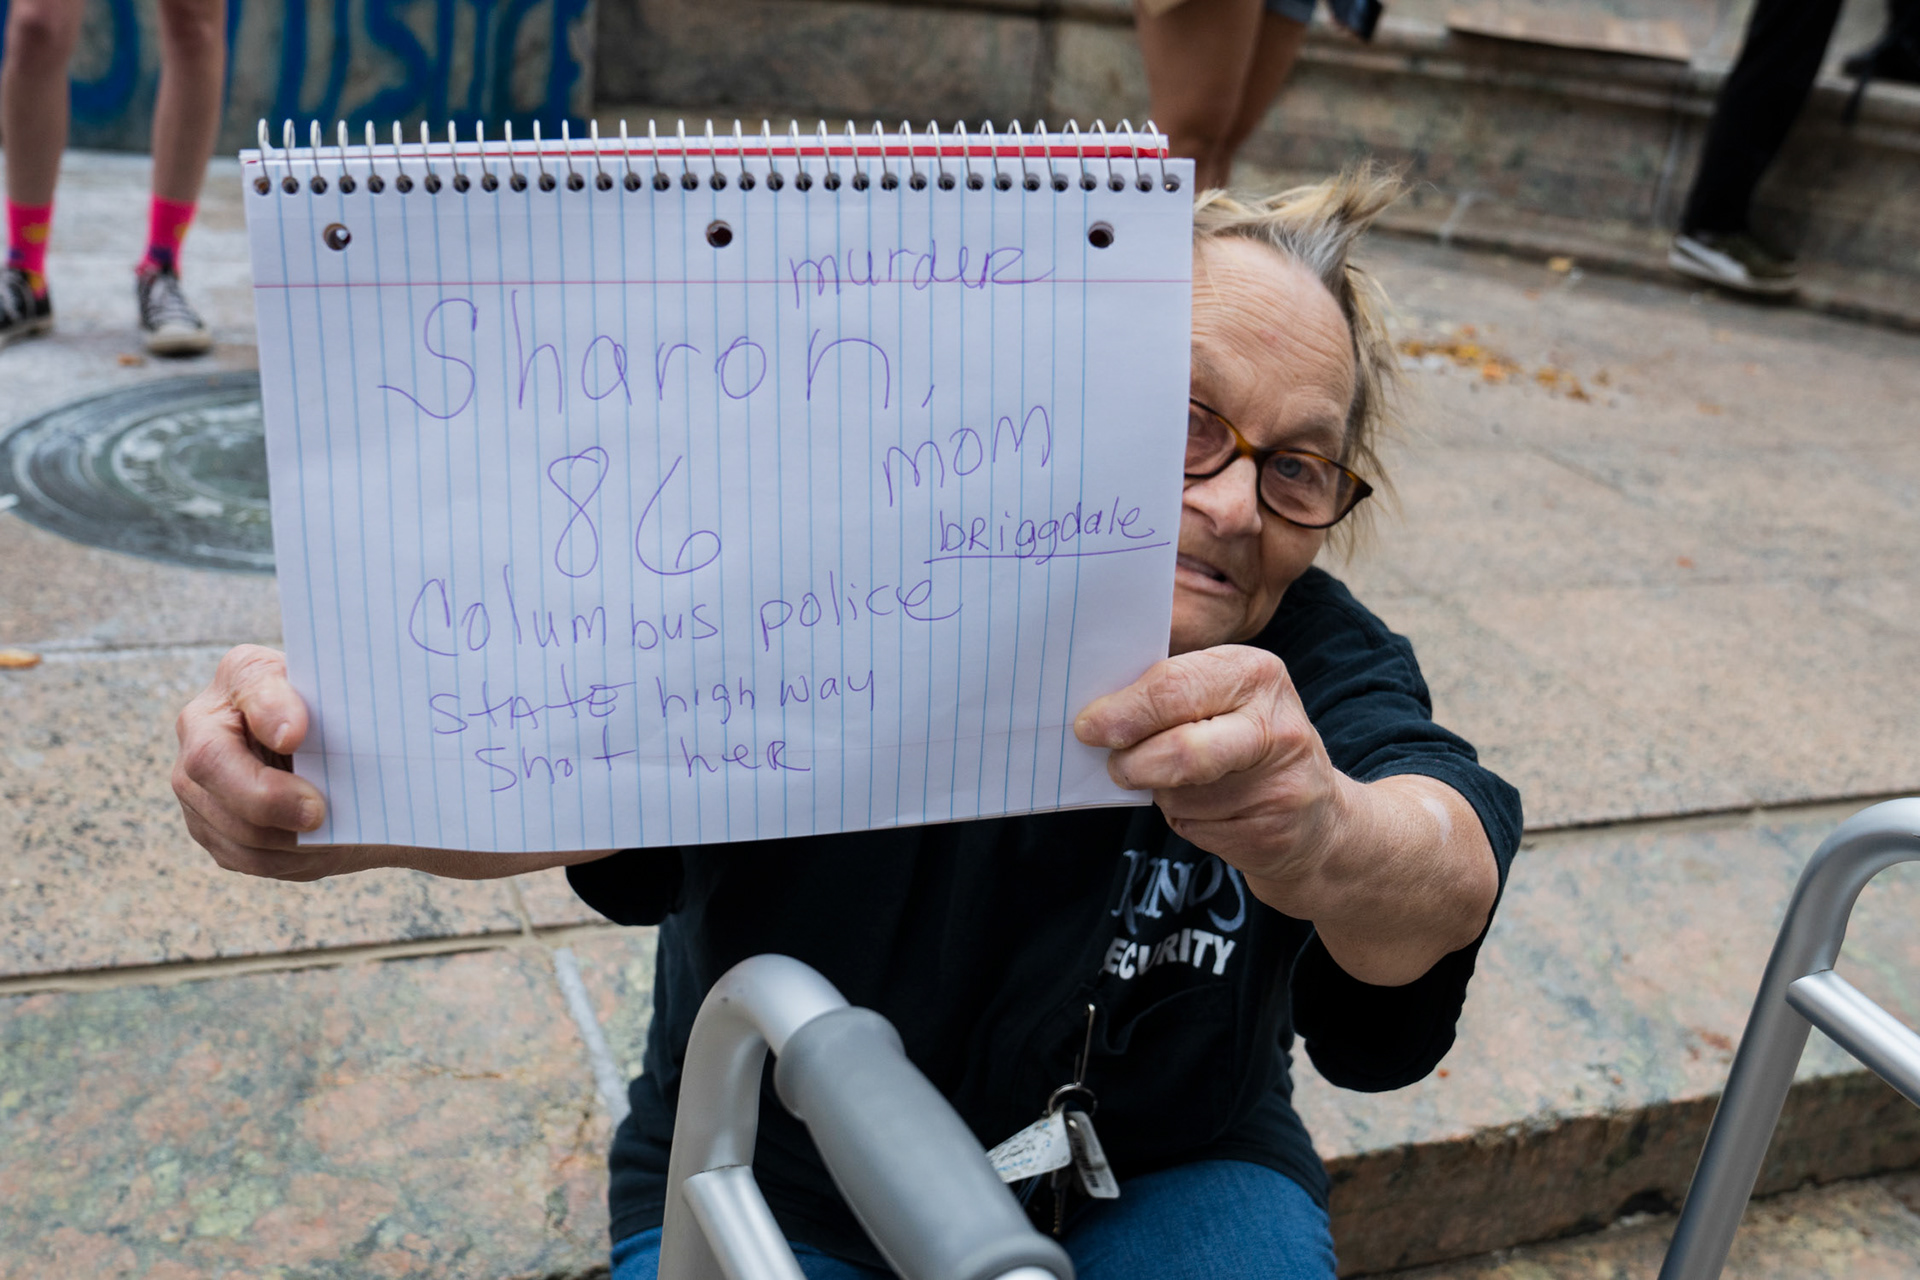 JUSTICE
murder
Sharon,
86 mom
briggdale
Columbus police
StAtE high way
Shot her
KINGS
SECURITY